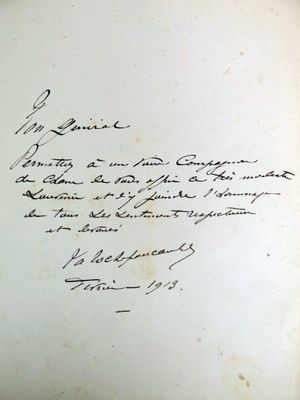 Mon Général
Permettez à un vieux Compagnon
de classe de vous offrir ce très modeste
Souvenir et d'y joindre l'hommage
de tous Les Sentiments respectueux
et
La Rochefoucauld
Février — 1913.